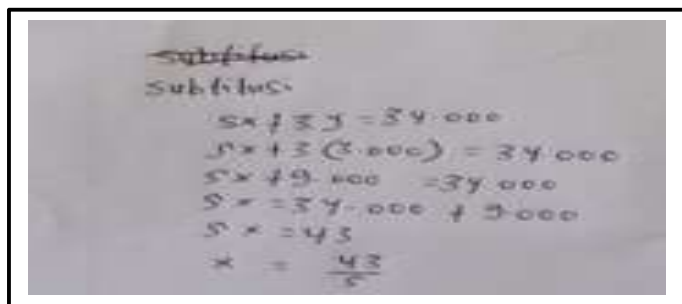 subtitusi
subtitusi
5x + 3y = 34.000
5x + 3 (3.000) = 34.000
5x + 9.000 = 34.000
5x = 34.000 + 9.000
5x = 43
x = 43/5